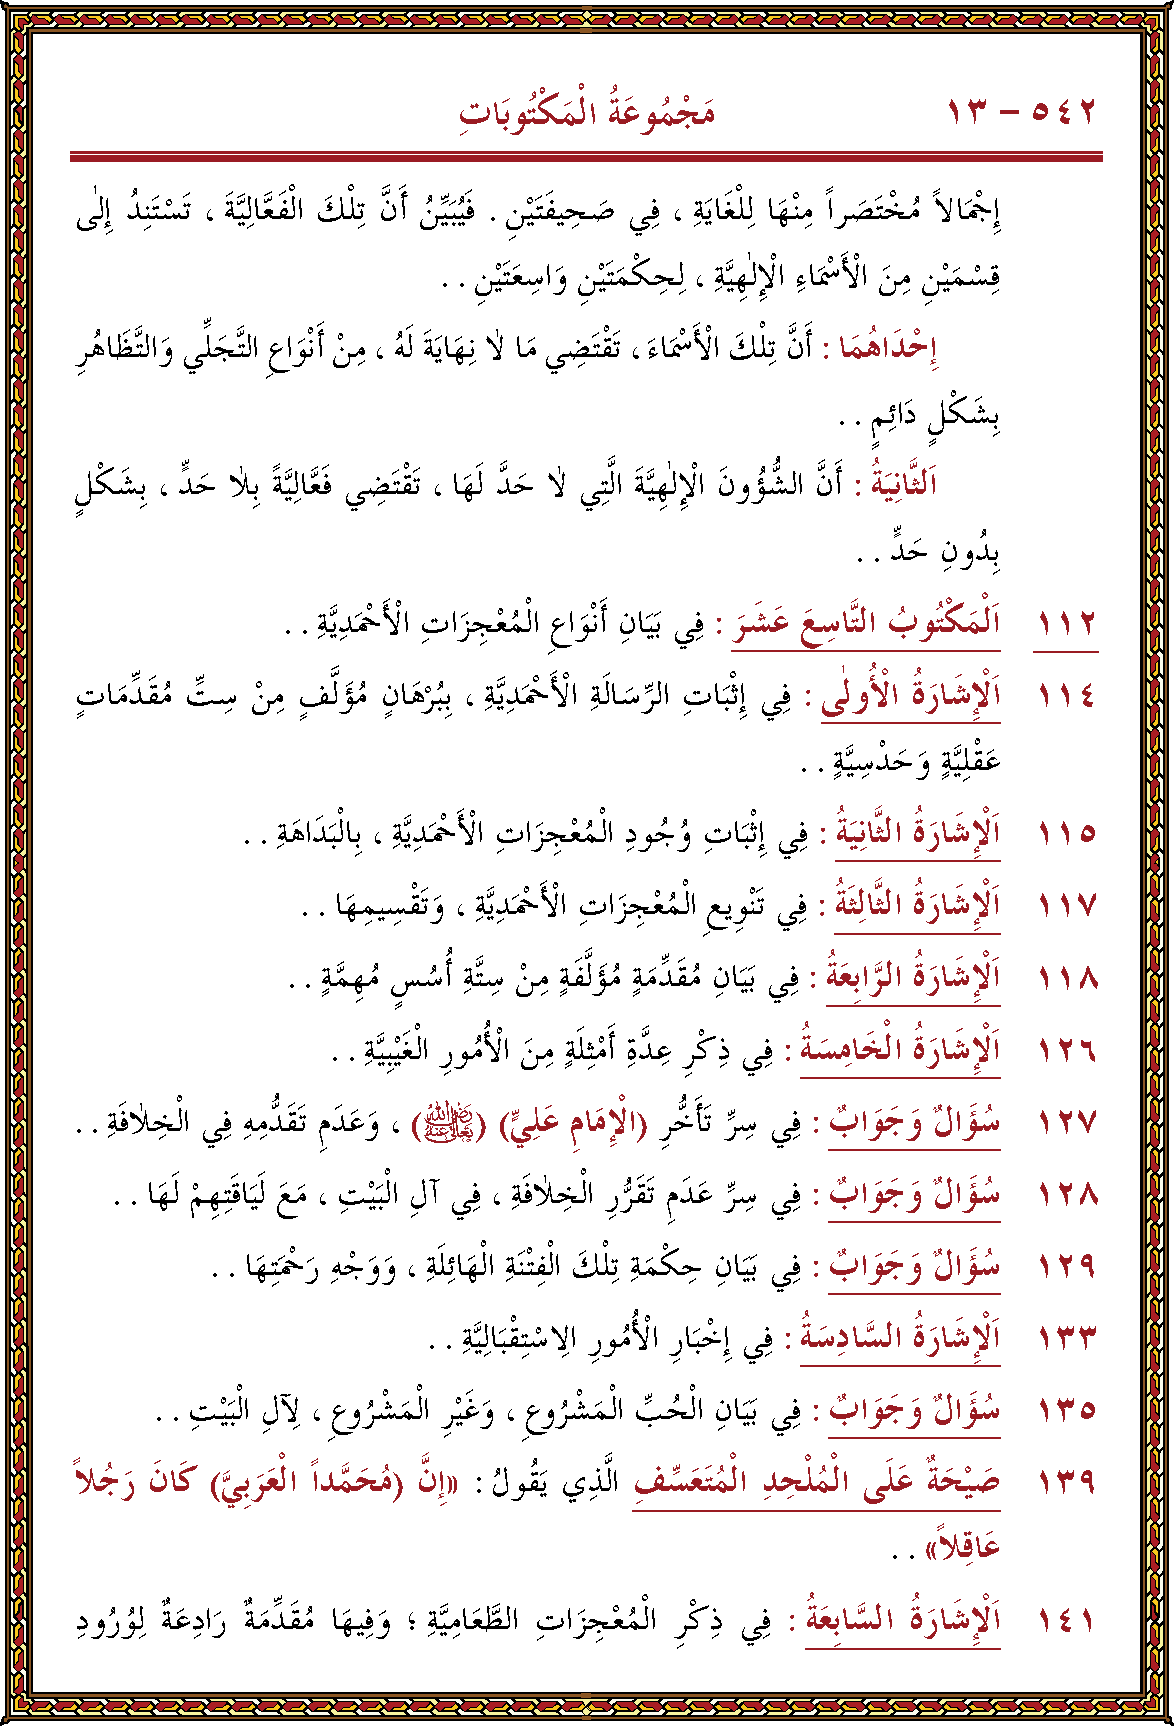 ٥٤٢ – ١٣ مَجْمُوعَةُ الْمَكْتُوبَاتِ
إِجْمَالاً مُخْتَصَراً مِنْهَا لِلْغَايَةِ ، فِي صَحِيفَتَيْنِ . فَيُبَيِّنُ أَنَّ تِلْكَ الْفَعَّالِيَّةَ ، تَسْتَنِدُ إِلٰى
قِسْمَيْنِ مِنَ الْأَسْمَاءِ الْإِلٰهِيَّةِ ، لِحِكْمَتَيْنِ وَاسِعَتَيْنِ . .
إِحْدَاهُمَا : أَنَّ تِلْكَ الْأَسْمَاءَ ، تَقْتَضِي مَا لَا نِهَايَةَ لَهُ ، مِنْ أَنْوَاعِ التَّجَلِّي وَالتَّظَاهُرِ
بِشَكْلٍ دَائِمٍ . .
اَلثَّانِيَةُ : أَنَّ الشُّؤُونَ الْإِلٰهِيَّةَ الَّتِي لَا حَدَّ لَهَا ، تَقْتَضِي فَعَّالِيَّةً بِلَا حَدٍّ ، بِشَكْلٍ
بِدُونِ حَدٍّ . .
١١٢ اَلْمَكْتُوبُ التَّاسِعَ عَشَرَ : فِي بَيَانِ أَنْوَاعِ الْمُعْجِزَاتِ الْأَحْمَدِيَّةِ . .
١١٤ اَلْإِشَارَةُ الْأُولٰى : فِي إِثْبَاتِ الرِّسَالَةِ الْأَحْمَدِيَّةِ ، بِبُرْهَانٍ مُؤَلَّفٍ مِنْ سِتِّ مُقَدِّمَاتٍ
عَقْلِيَّةٍ وَحَدْسِيَّةٍ . .
١١٥ اَلْإِشَارَةُ الثَّانِيَةُ : فِي إِثْبَاتِ وُجُودِ الْمُعْجِزَاتِ الْأَحْمَدِيَّةِ ، بِالْبَدَاهَةِ . .
١١٧ اَلْإِشَارَةُ الثَّالِثَةُ : فِي تَنْوِيعِ الْمُعْجِزَاتِ الْأَحْمَدِيَّةِ ، وَتَقْسِيمِهَا . .
١١٨ اَلْإِشَارَةُ الرَّابِعَةُ : فِي بَيَانِ مُقَدِّمَةٍ مُؤَلَّفَةٍ مِنْ سِتَّةِ أُسُسٍ مُهِمَّةٍ . .
١٢٦ اَلْإِشَارَةُ الْخَامِسَةُ : فِي ذِكْرِ عِدَّةِ أَمْثِلَةٍ مِنَ الْأُمُورِ الْغَيْبِيَّةِ . .
١٢٧ سُؤَالٌ وَجَوَابٌ : فِي سِرِّ تَأَخُّرِ (الْإِمَامِ عَلِيٍّ) (رَضِيَ اللهُ تَعَالَى عَنْهُ) ، وَعَدَمِ تَقَدُّمِهِ فِي الْخِلَافَةِ . .
١٢٨ سُؤَالٌ وَجَوَابٌ : فِي سِرِّ عَدَمِ تَقَرُّرِ الْخِلَافَةِ ، فِي آلِ الْبَيْتِ ، مَعَ لَيَاقَتِهِمْ لَهَا . .
١٢٩ سُؤَالٌ وَجَوَابٌ : فِي بَيَانِ حِكْمَةِ تِلْكَ الْفِتْنَةِ الْهَائِلَةِ ، وَوَجْهِ رَحْمَتِهَا . .
١٣٣ اَلْإِشَارَةُ السَّادِسَةُ : فِي إِخْبَارِ الْأُمُورِ الِاسْتِقْبَالِيَّةِ . .
١٣٥ سُؤَالٌ وَجَوَابٌ : فِي بَيَانِ الْحُبِّ الْمَشْرُوعِ ، وَغَيْرِ الْمَشْرُوعِ ، لِآلِ الْبَيْتِ . .
١٣٩ صَيْحَةٌ عَلَى الْمُلْحِدِ الْمُتَعَسِّفِ الَّذِي يَقُولُ : «إِنَّ (مُحَمَّداً الْعَرَبِيَّ) كَانَ رَجُلاً
عَاقِلاً» . .
١٤١ اَلْإِشَارَةُ السَّابِعَةُ : فِي ذِكْرِ الْمُعْجِزَاتِ الطَّعَامِيَّةِ ؛ وَفِيهَا مُقَدِّمَةٌ رَادِعَةٌ لِوُرُودِ